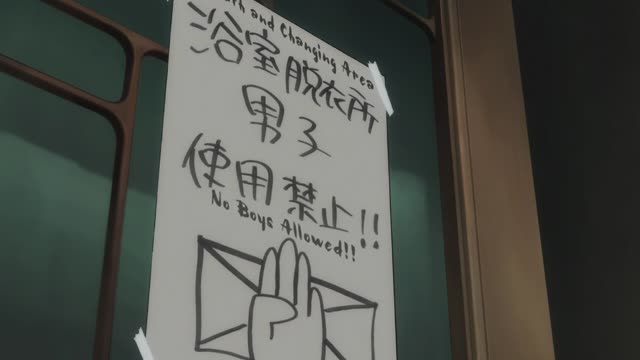 and Changing Area
浴室脱衣所
男子
使用禁止!!
No Boys Allowed!!